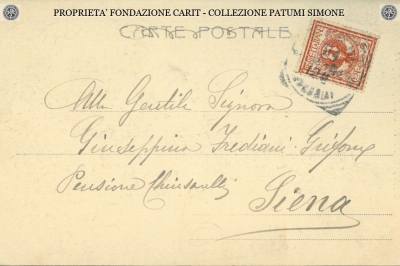 PROPRIETA' FONDAZIONE CARIT - COLLEZIONE PATUMI SIMONE
CARTE POSTALE
Alla Gentile Signora
Giuseppina Frediani
Pensione
Siena